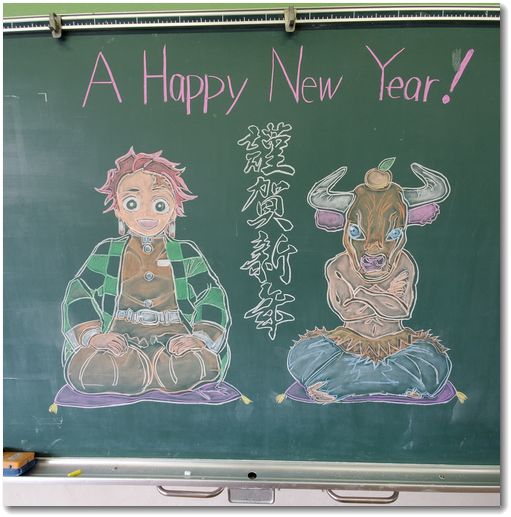 A Happy New Year!
謹賀新年